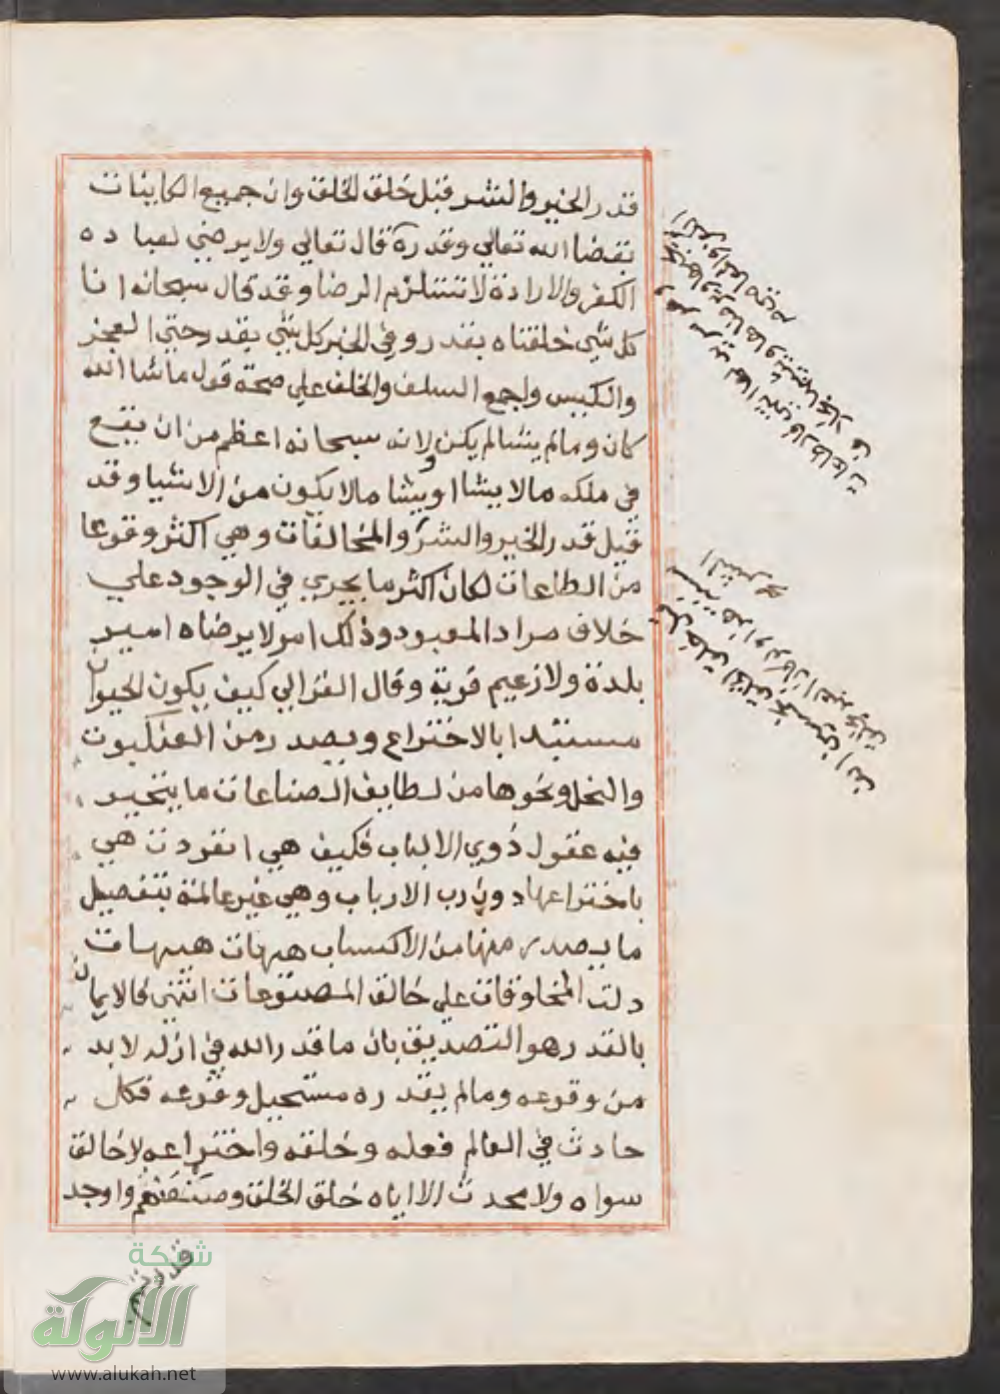 قدر الخير والشر قبل خلق الخلق وان جميع الكاينات
بقضا الله تعالي وقدرة قال تعالي ولا يرضي لعباده
الكفر والارادة لا تستلزم الرضا وقد قال سبحانه انا
كل شي خلقناه بقدر وفي الخبر كل شي بقدر حتي العجز
والكيس واجمع السلف والخلف علي صحة قول ماشا الله
كان ومالم يشالم يكن ولانه سبحانه اعظم من ان يقع
في ملكه مالا يشا او يشا مالا يكون من الاشيا وقد
قيل قدر الخير والشر والمخالفات وهي اكثر وقوعا
من الطاعات لكان اكثر ما يجري في الوجود علي
خلاف مراد المعبود وذلك امر لا يرضاه امير
بلدة ولا زعيم قرية وقال الغزالي كيف يكون الحيوان
مستبدا بالاختراع ويصدر من العنكبوت
والنحل ونحوها من لطايف الصناعات ما يتحير
فيه عقول ذوي الالباب فكيف هي انفردت هي
باختراعها دون رب الارباب وهي غير عالمة بتفصيل
ما يصدر منها من الاكتساب هيهات هيهات
دلت المخلوقات علي خالق المصنوعات انتهي فالايمان
بالقدر هو التصديق بان ما قدر الله في ازله لا بد
من وقوعه ومالم يقدره مستحيل وقوعه فكل
حادث في العالم فعله وخلقه واختراعه لا خالق
سواه ولا محدث الا اياه خلق الخلق وصنعهم واوجد
قدرتهم
شبكة
الألوكة
www.alukah.net